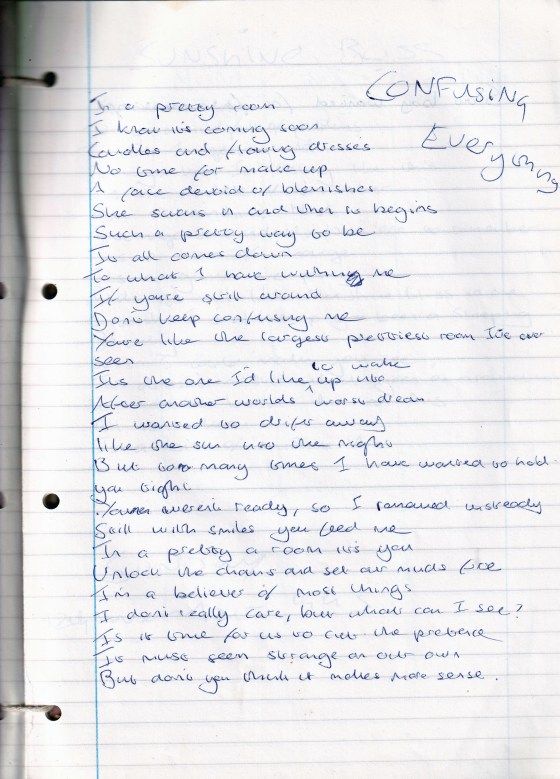 CONFUSING
EVERYTHING
In a pretty room
I know it's coming soon
Candles and flowing dresses
No time for make up
A face devoid of blemishes
She sucks in and then it begins
Such a pretty way to be
It all comes down
To what I have within me
If you're still around
Don't keep confusing me
You're like the largest prettiest room I've ever
seen
It's the one I'd like to wake up into
After another worlds worst dream
I wanted to drift away
like the sun into the night
But too many times I have wanted to hold
you tight
You weren't ready, so I remained unsteady
Still with smiles you feed me
In a pretty a room it's you
Unlock the chains and set our minds free
I'm a believer of most things
I don't really care, but what can I see?
Is it time for us to cut the pretence
It must seem strange on our own
But don't you think it makes more sense.